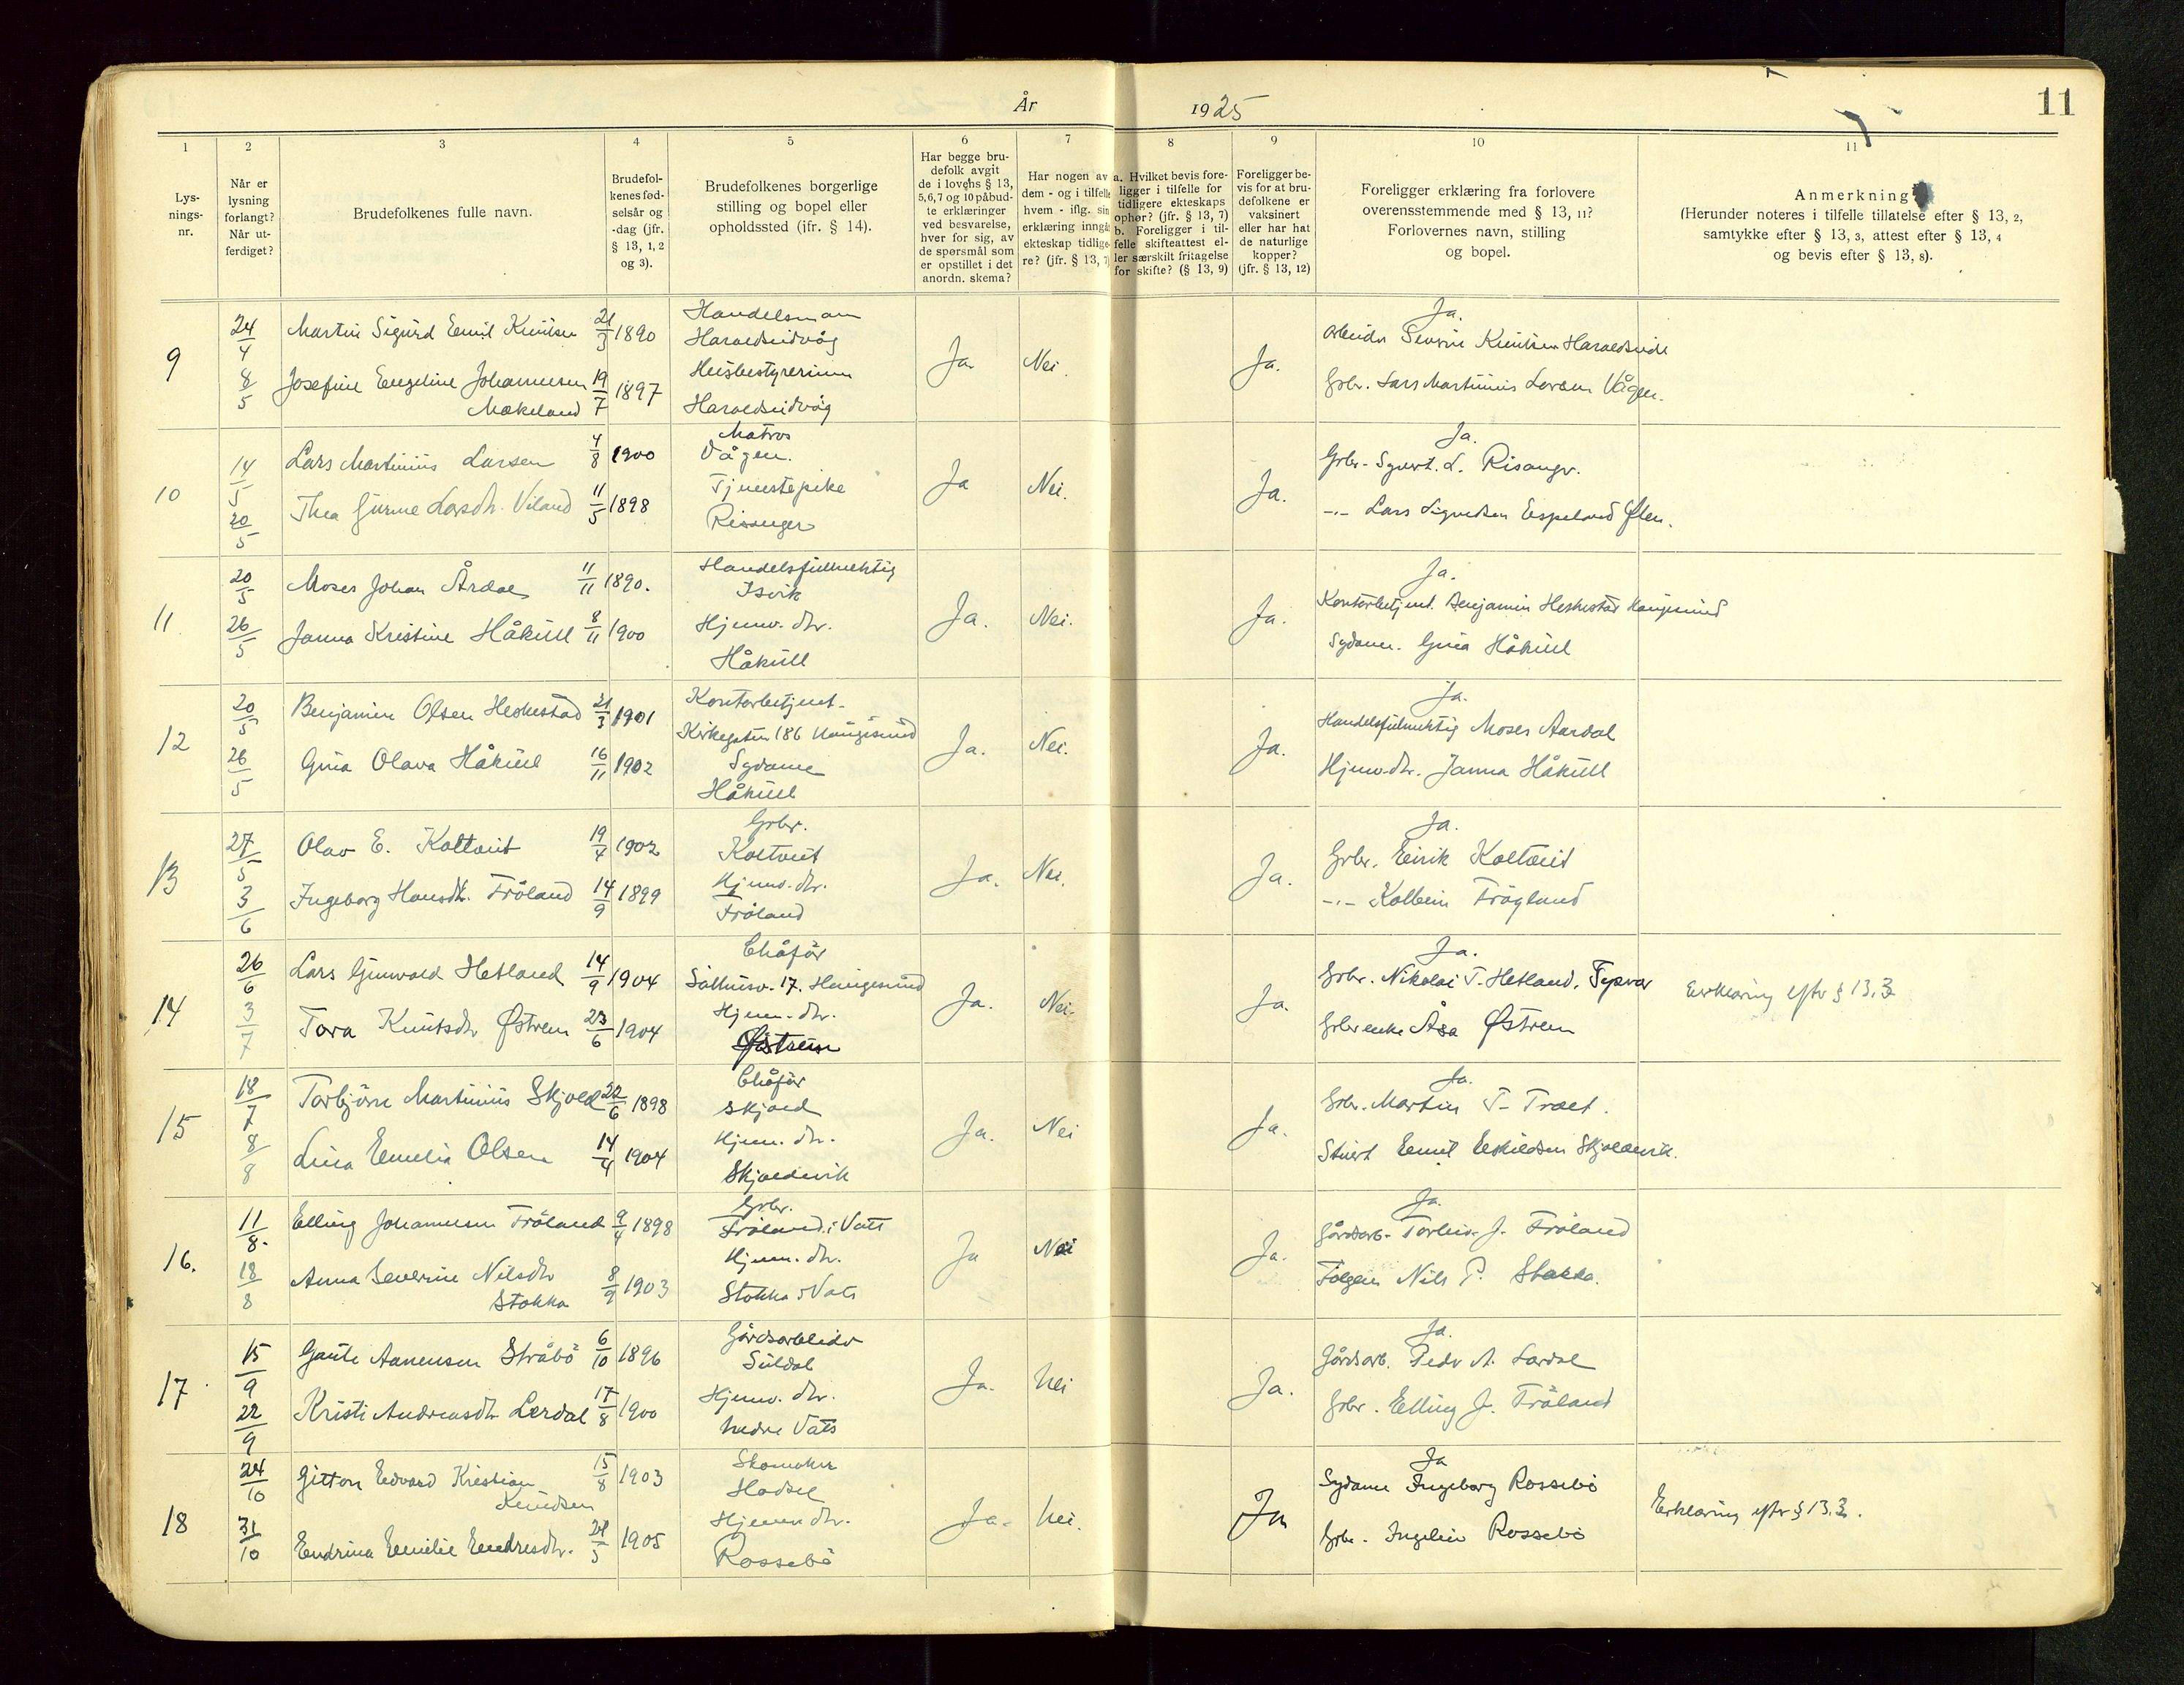 År 1925
11
1 2 3 4 5 6 7 8 9 10 11
Lys-
nings-
nr.
Når er
lysning
forlangt?
Når ut-
ferdiget?
Brudefolkenes fulle navn.
Brudefol-
kenes fød-
selsår og
-dag (jfr.
§ 13, 1, 2
og 3).
Brudefolkenes borgerlige
stilling og bopel eller
opholdssted (jfr. § 14).
Har begge bru-
defolk avgit
de i lovens § 13,
5,6,7 og 10 påbud-
te erklæringer
ved besvarelse,
hver for sig, av
de spørsmål som
er opstillet i det
anordn. skema?
Har nogen av
dem - og i tilfelle
hvem - iflg. sin
erklæring inngå
ekteskap tidlige-
re? (jfr. § 13, 7)
a. Hvilket bevis fore-
ligger i tilfelle for
tidligere ekteskaps
ophør? (jfr. § 13, 7)
b. Foreligger i til-
felle skifteattest el-
ler særskilt fritagelse
for skifte? (§ 13, 9)
Foreligger be-
vis for at bru-
defolkene er
vaksinert
eller har hat
de naturlige
kopper?
(jfr. § 13, 12)
Foreligger erklæring fra forlovere
overensstemmende med § 13, 11?
Forlovernes navn, stilling
og bopel.
Anmerkning
(Herunder noteres i tilfelle tillatelse efter § 13, 2,
samtykke efter § 13, 3, attest efter § 13, 4
og bevis efter § 13, 8).
9
24/4
8/5
Martin Sigurd Emil Knutsen 21/3 1890
Josefine Engeline Johannesen 19/7 1897
Mækeland
Handelsman
Haraldseidvåg
Husbestyrerinne
Haraldseidvåg
Ja. Nei. Ja.
Ja.
Arbeider Severin Knutsen Haraldseide
Grbr. Lars Martinius Larsen Vågen.
10
14/5
20/5
Lars Martinius Larsen 4/8 1900
Thea Gurine Larsdtr. Viland 11/5 1898
Matros
Vågen.
Tjenestepike
Risanger
Ja Nei. Ja.
Ja.
Grbr. Sjurt. L. Risangr.
-"- Lars Sigvedsen Espeland Ølen.
11
20/5
26/5
Moses Johan Årdal 11/11 1890.
Janna Kristine Håkull 8/11 1900
Handelsfullmektig
Isvik
Hjemv. dtr.
Håkull
Ja. Nei. Ja.
Ja.
Kontorbetjent. Benjamin Heskestad Haugesund
Sydame. Gina Håkull
12
20/5
26/5
Benjamin Olsen Heskestad 21/3 1901
Gina Olava Håkull 16/11 1902
Kontorbetjent.
Kirkegaten 186 Haugesund
Sydame
Håkull
Ja. Nei. Ja.
Ja.
Handelsfullmektig Moses Aardal
Hjemv. dtr. Janna Håkull
13
27/5
3/6
Olav E. Koltveit 19/4 1902
Ingeborg Hansdtr. Fröland 14/9 1899
Grbr.
Koltveit
Hjemv. dtr.
Fröland
Ja. Nei. Ja.
Ja.
Grbr. Eirik Koltveit
-"- Kolbein Frögland
14
26/6
3/7
Lars Gunvald Hetland 14/9 1904
Tora Knutsdtr Østrem 23/6 1904
Chåfør
Salhusv. 17. Haugesund
Hjem. dtr.
Østrem
Ja. Nei. Ja.
Ja.
Grbr. Nikolai T. Hetland, Tysvær
Grbrenke Åsa Østrem
Erklæring efter § 13.3
15
18/7
8/8
Torbjörn Martinius Skjold 22/6 1898
Lina Emelia Olsen 14/4 1904
Chåför
Skjold
Hjem. dtr.
Skjoldevik
Ja. Nei Ja.
Ja.
Grbr. Martin T. Traet.
Stuert Emil Eskildsen Skjoldevik.
16.
11/8
18/8
Elling Johannesen Fröland 9/4 1898
Anna Severine Nilsdtr 8/9 1903
Stokka
Grbr.
Fröland i Vats
Hjem. dtr.
Stokka i Vats
Ja Nei Ja.
Ja.
Gårdsarb. Torleiv J. Fröland
Nils P. Stakka.
17
15/9
22/9
Gaute Aanensen Stråbö 6/10 1896
Kristi Andreasdtr Lerdal 17/8 1900
Gårdsarbeider
Suldal
Hjemv. dtr.
Nedre Vats
Ja. Nei Ja.
Ja.
Gårdsarb. Peder A. Lardal
Grbr. Elling J. Fröland
18
24/10
31/10
Gitton Edvard Kristian 15/8 1903
Knudsen
Endrina Emilie Endresdtr. 24/5 1905
Skomaker
Hjemv dtr.
Rossebö
Ja. Nei. Ja
Ja
Sydame Ingeborg Rossebö
Grbr. Rossebö
Erklæring efter § 13.3.